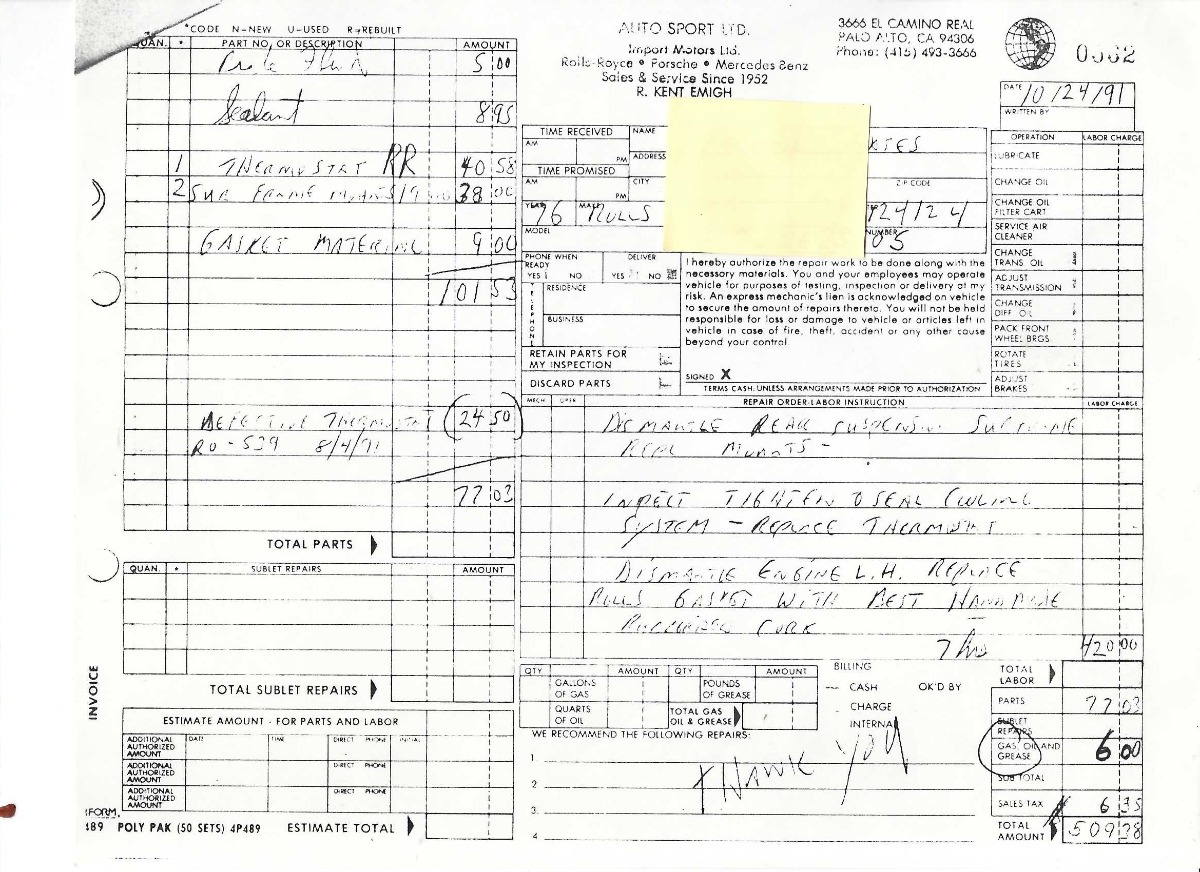 *CODE N-NEW U-USED R-REBUILT
QUAN. * PART NO, OR DESCRIPTION AMOUNT
5 00
Sealant 8 95
1 THERMOSTAT RR 40 58
2 SUB FRAME 38 00
GASKET MATERIAL 9 00
101 53
DEFECTIVE THERMOSTAT (24 50)
RO-539 8/4/91
77 03
TOTAL PARTS
QUAN. * SUBLET REPAIRS AMOUNT
TOTAL SUBLET REPAIRS
INVOICE
ESTIMATE AMOUNT - FOR PARTS AND LABOR
ADDITIONAL AUTHORIZED AMOUNT DATE TIME DIRECT PHONE INITIAL
ADDITIONAL AUTHORIZED AMOUNT DIRECT PHONE
ADDITIONAL AUTHORIZED AMOUNT DIRECT PHONE
FORM.
489 POLY PAK (50 SETS) 4P489 ESTIMATE TOTAL
AUTO SPORT LTD.
Import Motors Ltd.
Rolls-Royce • Porsche • Mercedes Benz
Sales & Service Since 1952
R. KENT EMIGH
3666 EL CAMINO REAL
PALO ALTO, CA 94306
Phone: (415) 493-3666
0562
DATE 10/24/91
WRITTEN BY
TIME RECEIVED NAME
AM PM ADDRESS
TIME PROMISED
AM PM CITY ZIP CODE
YEAR 76 MAKE ROLLS 24124
MODEL NUMBER 05
PHONE WHEN READY YES NO DELIVER YES NO
TELEPHONE
RESIDENCE
BUSINESS
RETAIN PARTS FOR MY INSPECTION
DISCARD PARTS
I hereby authorize the repair work to be done along with the
necessary materials. You and your employees may operate
vehicle for purposes of testing, inspection or delivery at my
risk. An express mechanic's lien is acknowledged on vehicle
to secure the amount of repairs thereto. You will not be held
responsible for loss or damage to vehicle or articles left in
vehicle in case of fire, theft, accident or any other cause
beyond your control.
SIGNED X
TERMS CASH: UNLESS ARRANGEMENTS MADE PRIOR TO AUTHORIZATION
OPERATION LABOR CHARGE
LUBRICATE
CHANGE OIL
CHANGE OIL FILTER CART
SERVICE AIR CLEANER
CHANGE TRANS OIL
ADJUST TRANSMISSION
CHANGE DIFF OIL
PACK FRONT WHEEL BRGS.
ROTATE TIRES
ADJUST BRAKES
MECH OPER REPAIR ORDER-LABOR INSTRUCTION LABOR CHARGE
DISMANTLE REAR SUSPENSION SUBFRAME
REAR MOUNTS -
INSPECT TIGHTEN & SEAL COOLING
SYSTEM - REPLACE THERMOSTAT
DISMANTLE ENGINE L.H. REPLACE
ROLLS GASKET WITH BEST HANDMADE
CORK
7 hrs 420 00
QTY AMOUNT QTY AMOUNT
GALLONS OF GAS POUNDS OF GREASE
QUARTS OF OIL TOTAL GAS OIL & GREASE
BILLING
CASH OK'D BY
CHARGE
INTERNAL
WE RECOMMEND THE FOLLOWING REPAIRS:
1
2
3
4
THANK YOU
TOTAL LABOR
PARTS 77 03
SUBLET REPAIRS
GAS, OIL AND GREASE 6 00
SUB TOTAL
SALES TAX 6 35
TOTAL AMOUNT 509 38